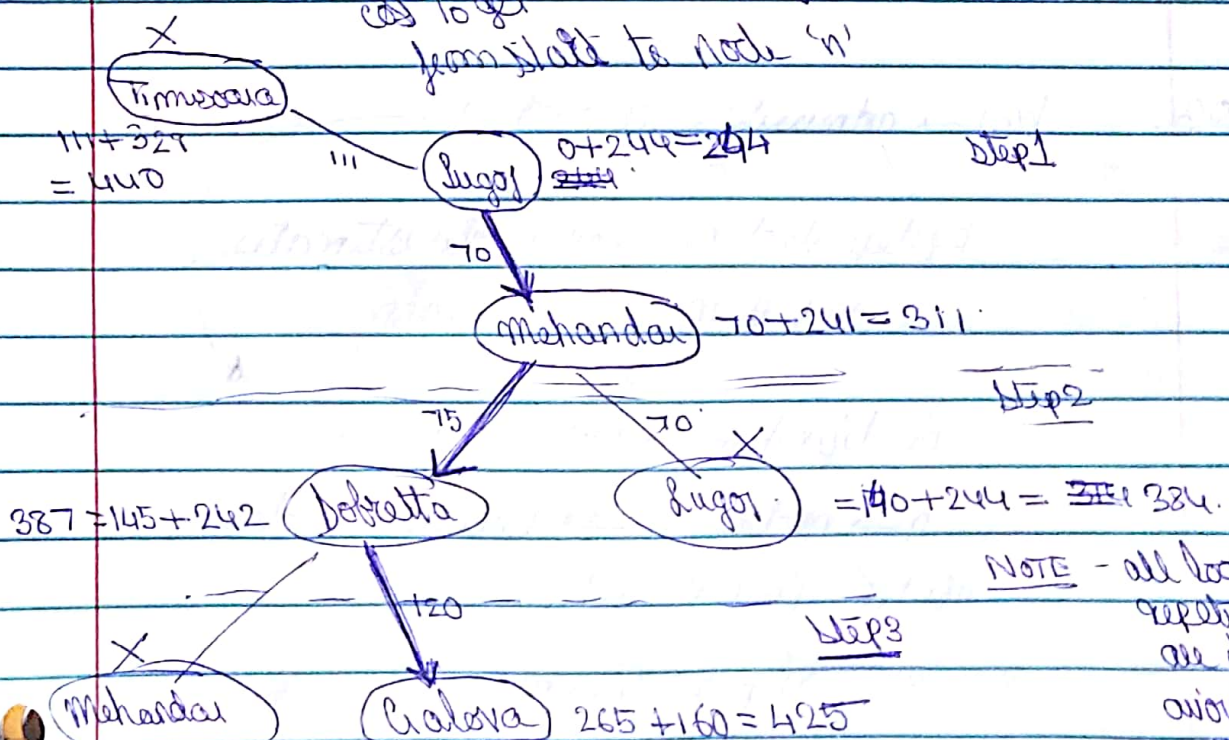 cost to get
from start to node 'n'
X
Timisoara
111+329
= 440
111
Lugoj
0+244=244
Step1
70
Mehandai
70+241=311.
Step2
75
70
X
387=145+242
Dobretta
Lugoj
=140+244= 384.
NOTE - all loo
repeti
are
avoi
120
Step3
X
Mehandai
Cralova
265+160=425